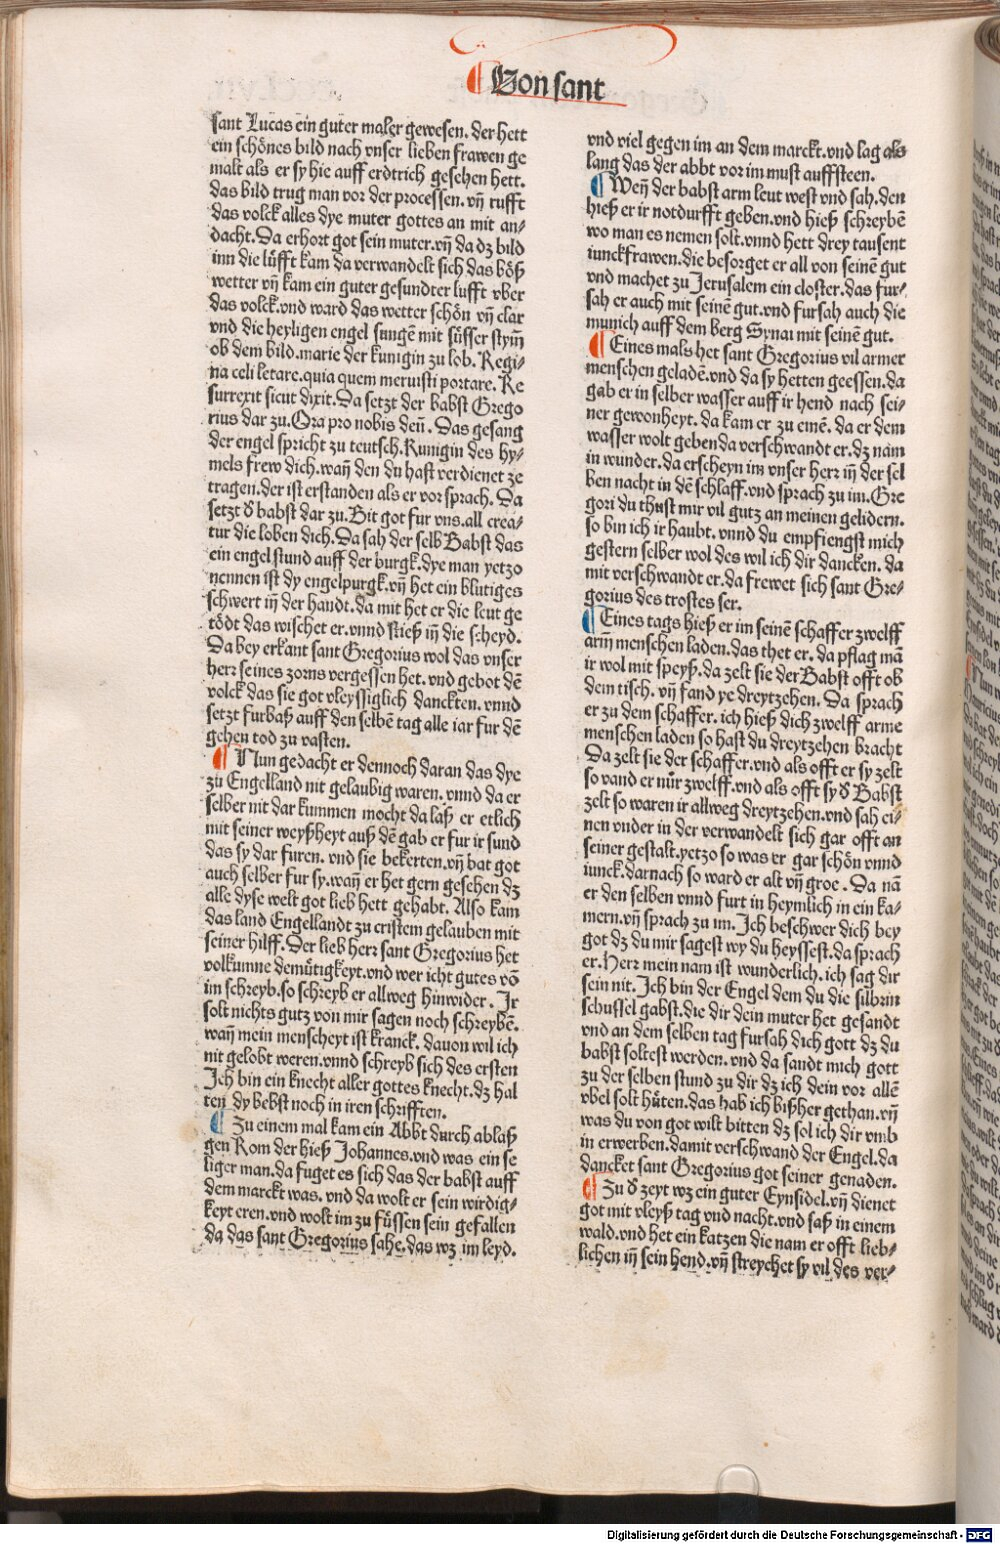 ¶ Von sant
sant Lucas ein guter maler gewesen. der hett
ein schönes bild nach vnser lieben frawen ge
malt als er sy hie auff erdtrich gesehen hett.
das bild trug man vor der processen. vñ rufft
das volck alles dye muter gottes an mit an⸗
dacht. Da erhort got sein muter. vñ da dz bild
inn die lüfft kam da verwandelt sich das böß
wetter vñ kam ein guter gesundter lufft vber
das volck. vnd ward das wetter schön vñ clar
vnd die heyligen engel sungē mit süsser stym̄
ob dem bild. marie der kunigin zu lob. Regi⸗
na celi letare. quia quem meruisti portare. Re
surrexit sicut dixit. Da setzt der babst Grego
rius dar zu. Ora pro nobis deū. Das gesang
der engel spricht zu teutsch. Kunigin des hy⸗
mels frew dich. wañ den du hast verdienet ze
tragen. der ist erstanden als er vor sprach. Da
setzt d̕ babst dar zu. Bit got fur vns. all crea⸗
tur die loben dich. Da sah der selb Babst das
ein engel stund auff der burgk. dye man yetzo
nennen ist dy engelpurgk. vñ het ein blutiges
schwert iñ der handt. da mit het er die leut ge
tödt das wischet er. vnnd stieß iñ die scheyd.
Da bey erkant sant Gregorius wol das vnser
herr seines zorns vergessen het. vnd gebot dē
volck das sie got vleyssiglich danckten. vnnd
setzt furbaß auff den selbē tag alle iar fur dē
gehen tod zu vasten.
¶ Nun gedacht er dennoch daran das dye
zu Engelland nit gelaubig waren. vnnd da er
selber nit dar kummen mocht da laß er etlich
mit seiner weyßheyt auß dē gab er fur ir sund
das sy dar furen. vnd sie bekerten. vñ bat got
auch selber fur sy. wañ er het gern gesehen dz
alle dyse welt got lieb hett gehabt. Also kam
das land Engellandt zu cristem gelauben mit
seiner hilff. Der lieb herr sant Gregorius het
volkumne demütigkeyt. vnd wer icht gutes vō
im schreyb. so schreyb er allweg hinwider. Ir
solt nichts gutz von mir sagen noch schreybē.
wañ mein menscheyt ist kranck. dauon wil ich
nit gelobt weren. vnnd schreyb sich des ersten
Ich bin ein knecht aller gottes knecht. dz hal
ten dy bebst noch in iren schrifften.
¶ Zu einem mal kam ein Abbt durch ablaß
gen Rom der hieß Johannes. vnd was ein se
liger man. da fuget es sich das der babst auff
dem marckt was. vnd da wolt er sein wirdig⸗
keyt eren. vnd wolt im zu füssen sein gefallen
da das sant Gregorius sahe. das wz im leyd.
vnd viel gegen im an dem marckt. vnd lag als
lang das der abbt vor im must auffsteen.
¶ Weñ der babst arm leut west vnd sah. den
hieß er ir notdurfft geben. vnd hieß schreybē
wo man es nemen solt. vnnd hett drey tausent
iunckfrawen. die besorget er all von seinē gut
vnd machet zu Jerusalem ein closter. das fur⸗
sah er auch mit seinē gut. vnd fursah auch die
munich auff dem berg Synai mit seinē gut.
¶ Eines mals het sant Gregorius vil armer
menschen geladē. vnd da sy hetten geessen. da
gab er in selber wasser auff ir hend nach sei⸗
ner gewonheyt. da kam er zu einē. da er dem
wasser wolt geben da verschwandt er. dz nam
in wunder. da erscheyn im vnser herr iñ der sel
ben nacht in dē schlaff. vnd sprach zu im. Gre
gori du thust mir vil gutz an meinen gelidern.
so bin ich ir haubt. vnnd du empfiengst mich
gestern selber wol des wil ich dir dancken. da
mit verschwandt er. da frewet sich sant Gre⸗
gorius des trostes ser.
¶ Eines tags hieß er im seinē schaffer zwelff
arm̄ menschen laden. das thet er. da pflag mā
ir wol mit speyß. da zelt sie der Babst offt ob
dem tisch. vñ fand ye dreytzehen. Da sprach
er zu dem schaffer. ich hieß dich zwelff arme
menschen laden so hast du dreytzehen bracht
Da zelt sie der schaffer. vnd als offt er sy zelt
so vand er nür zwelff. vnd als offt sy d̕ Babst
zelt so waren ir allweg dreytzehen. vnd sah ei⸗
nen vnder in der verwandelt sich gar offt an
seiner gestalt. yetzo so was er gar schön vnnd
iunck. darnach so ward er alt vñ groe. Da nā
er den selben vnnd furt in heymlich in ein ka⸗
mern. vñ sprach zu im. Ich beschwer dich bey
got dz du mir sagest wy du heyssest. da sprach
er. Herr mein nam ist wunderlich. ich sag dir
sein nit. Ich bin der Engel dem du die silbrin
schussel gabst. die dir dein muter het gesandt
vnd an dem selben tag fursah dich gott dz du
babst soltest werden. vnd da sandt mich gott
zu der selben stund zu dir dz ich dein vor allē
vbel solt hüten. das hab ich bißher gethan. vñ
was du von got wilt bitten dz sol ich dir vmb
in erwerben. damit verschwand der Engel. da
dancket sant Gregorius got seiner genaden.
¶ Zu d̕ zeyt wz ein guter Eynsidel. vñ dienet
got mit vleyß tag vnd nacht. vnd saß in einem
wald. vnd het ein katzen die nam er offt lieb⸗
lichen iñ sein hend. vñ streychet sy vil des ver⸗
Digitalisierung gefördert durch die Deutsche Forschungsgemeinschaft - DFG